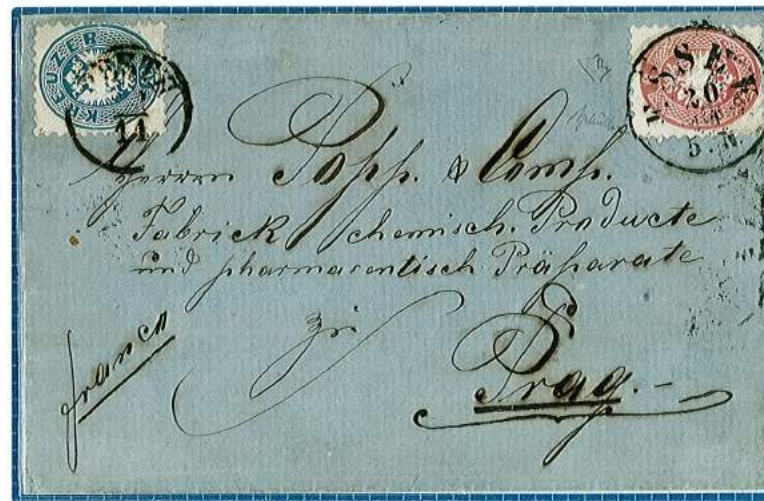 KREUZER
11
20
5. N.
Herren Popp. & Comp.
Fabrick chemisch. Producte
und pharmaceutisch Präparate
zu
franco
Prag.-